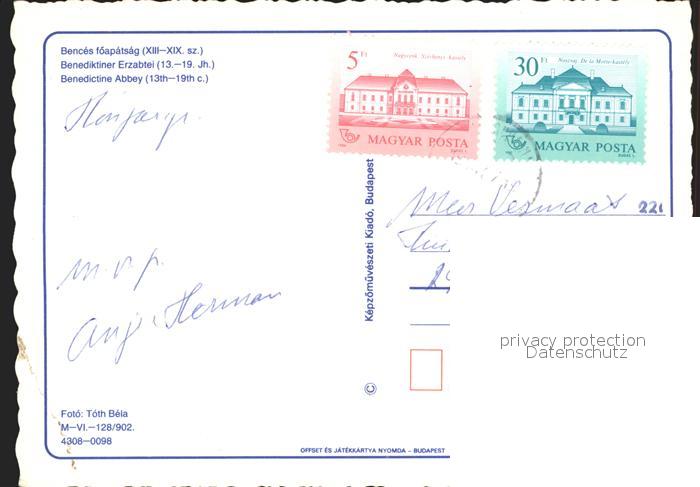 Bencés főapátság (XIII–XIX. sz.)
Benediktiner Erzabtei (13.–19. Jh.)
Benedictine Abbey (13th–19th c.)
5 Ft
Nagycenk, Széchenyi-kastély
MAGYAR POSTA
30 Ft
Noszvaj, De la Motte-kastély
MAGYAR POSTA
Hongarije.
Képzőművészeti Kiadó, Budapest
©
Meer Vermaas
220
m.v.g.
Anja Herman
privacy protection
Datenschutz
Fotó: Tóth Béla
M–VI.–128/902.
4308–0098
OFFSET ÉS JÁTÉKKÁRTYA NYOMDA – BUDAPEST